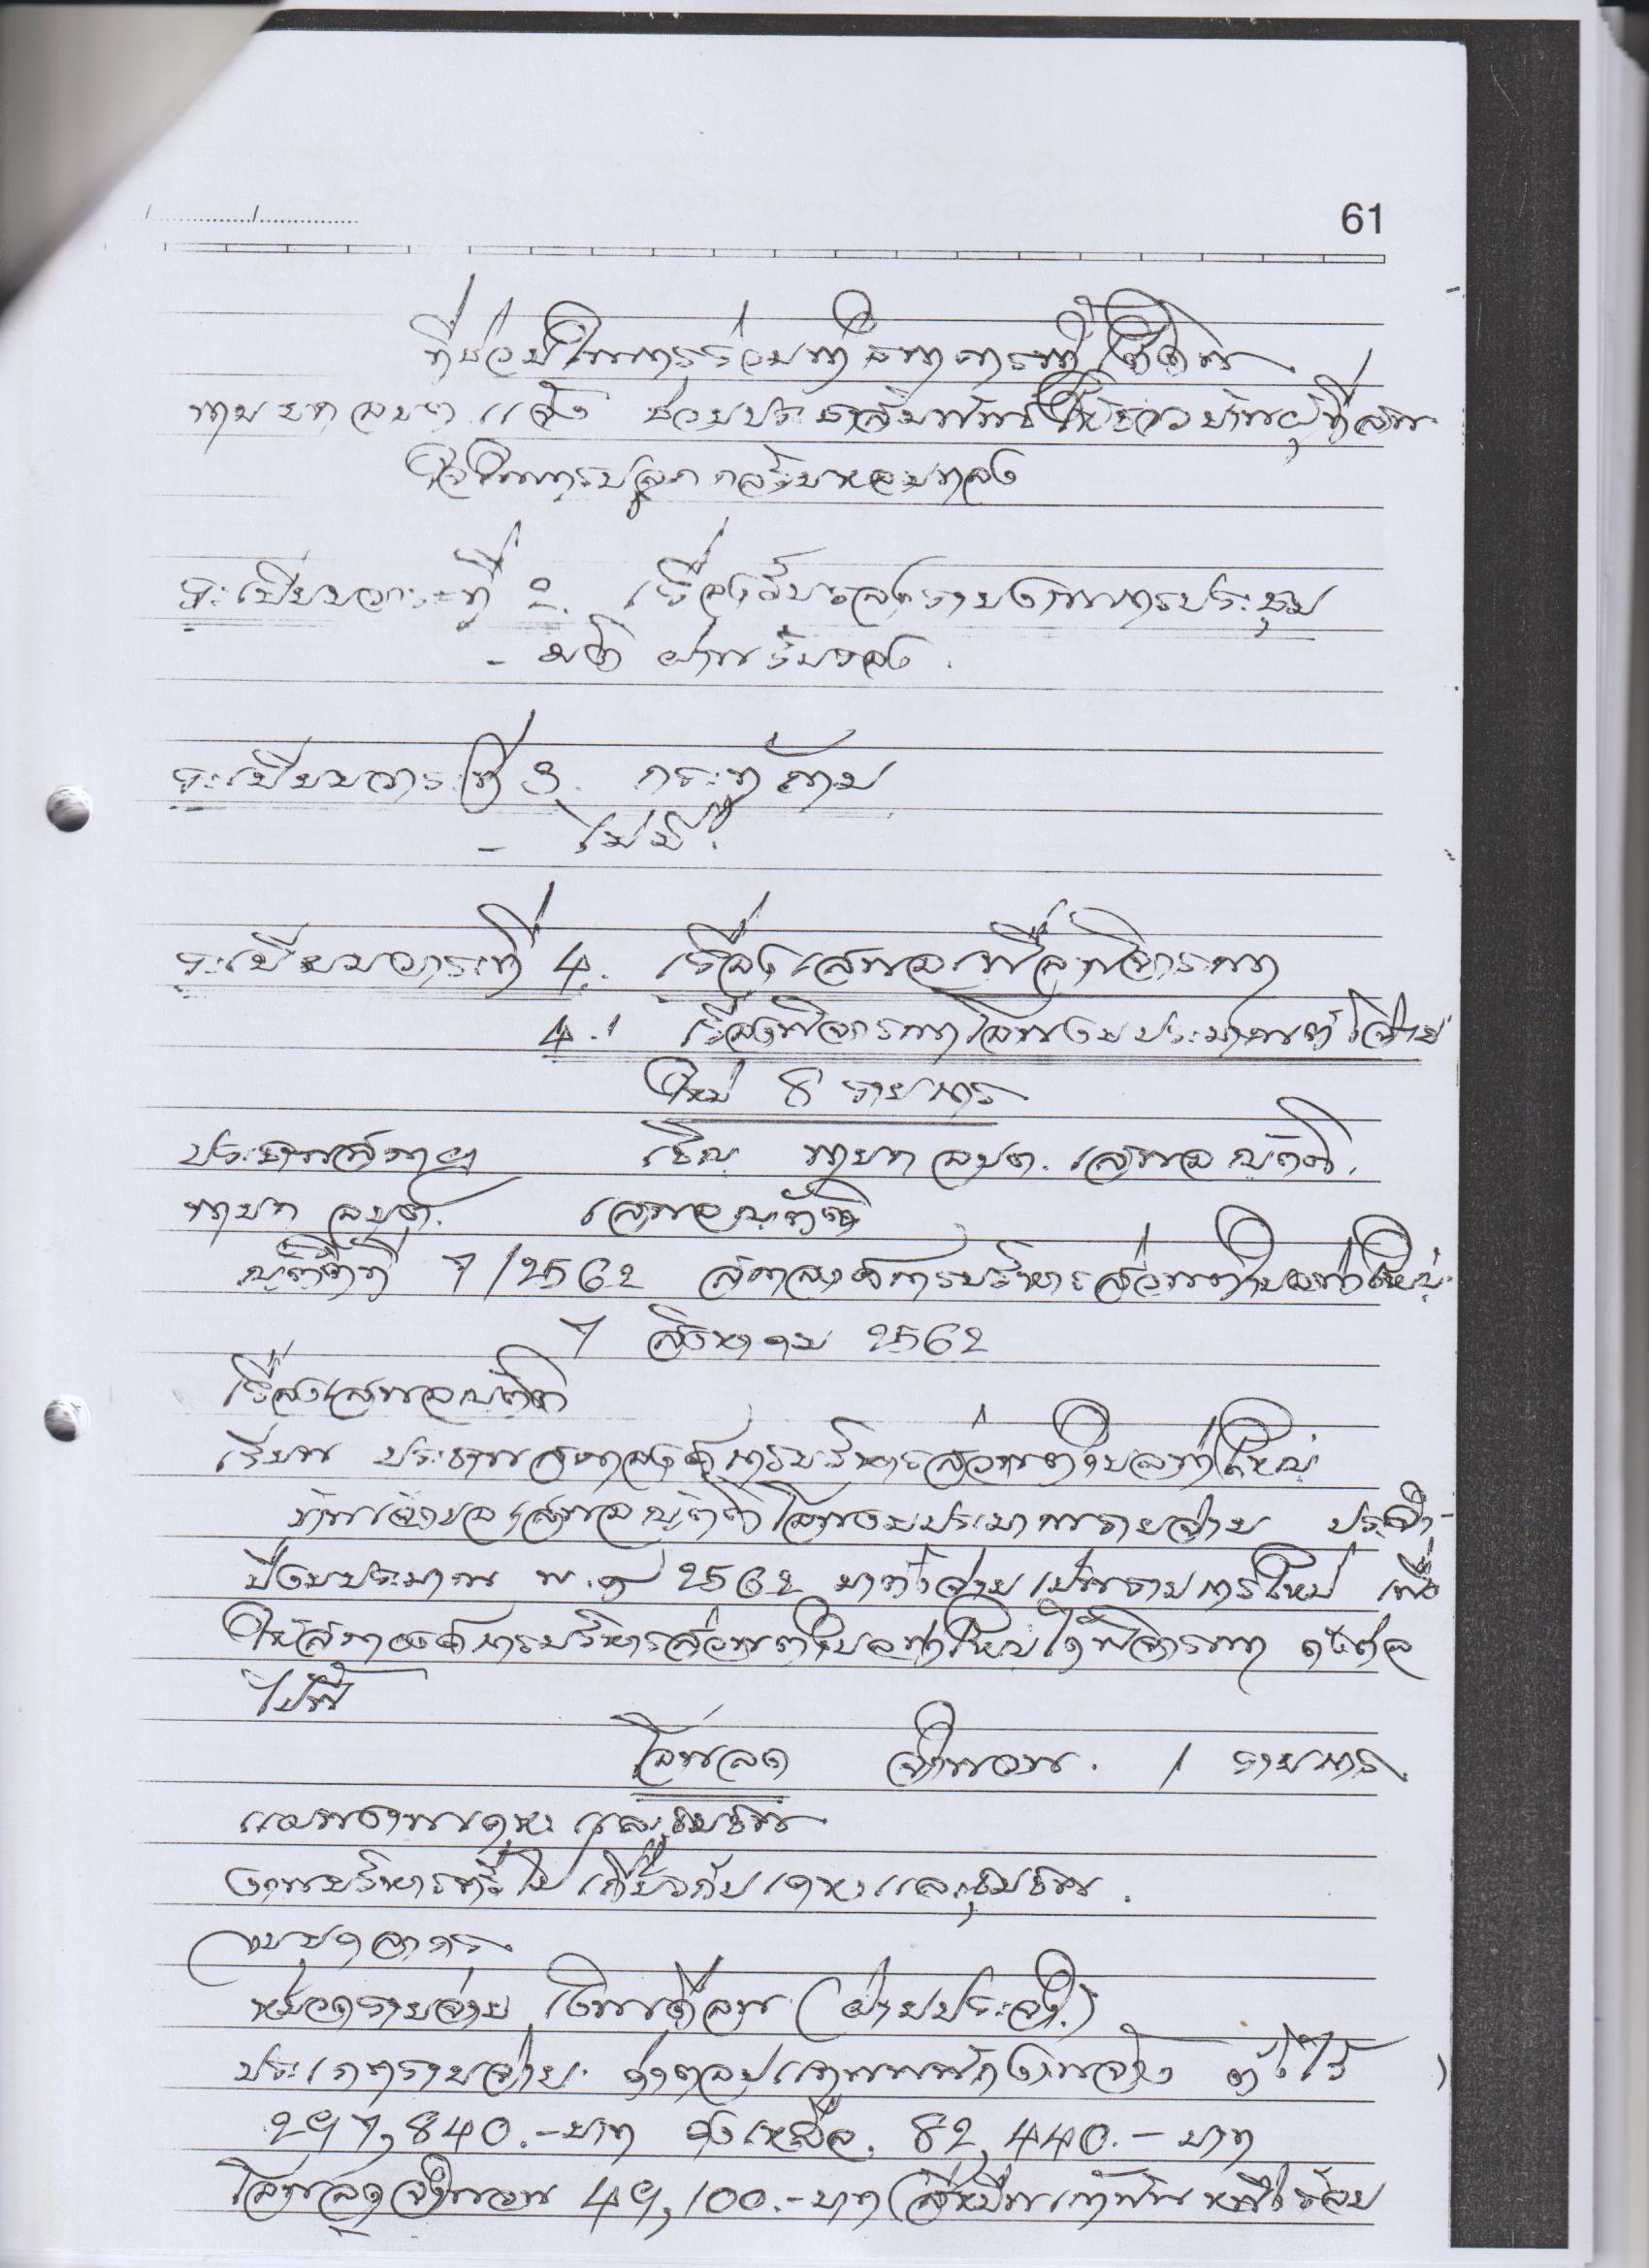 61
ที่ช่วยในการร่วมทำกิจกรรม
นายก อบต. แจ้ง ช่วยประชาสัมพันธ์ให้ชาวบ้านผู้ที่สน
ใจในการปลูกกล้วยหอมทอง
ระเบียบวาระที่ 2. เรื่องรับรองรายงานการประชุม
- มติ ผ่านรับรอง.
ระเบียบวาระที่ 3. กระทู้ถาม
- ไม่มี
ระเบียบวาระที่ 4. เรื่องเสนอเพื่อพิจารณา
4.1 เรื่องพิจารณาโอนงบประมาณตั้งจ่าย
ใหม่ 8 รายการ
ประธานสภาฯ เชิญ นายก อบต. เสนอญัตติ.
นายก อบต. เสนอญัตติ
ญัตติที่ 7/2562 สภาองค์การบริหารส่วนตำบลท่าใหญ่
7 สิงหาคม 2562
เรื่องเสนอญัตติ
เรียน ประธานสภาองค์การบริหารส่วนตำบลท่าใหญ่
ข้าพเจ้าขอเสนอญัตติโอนงบประมาณรายจ่าย ประจำ-
ปีงบประมาณ พ.ศ 2562 มาตั้งจ่ายเป็นรายการใหม่ เพื่อ
ให้สภาองค์การบริหารส่วนตำบลท่าใหญ่ได้พิจารณา ดังต่อ
ไปนี้
โอนลด จำนวน. 1 รายการ
แผนงานเคหะและชุมชน
งานบริหารทั่วไปเกี่ยวกับเคหะและชุมชน.
งบบุคลากร
หมวดรายจ่าย เงินเดือน (ฝ่ายประจำ)
ประเภทรายจ่าย ค่าตอบแทนพนักงานจ้าง ตั้งไว้
297,840.-บาท คงเหลือ. 82,440.- บาท
โอนลดจำนวน 49,100.-บาท (สี่หมื่นเก้าพันหนึ่งร้อย